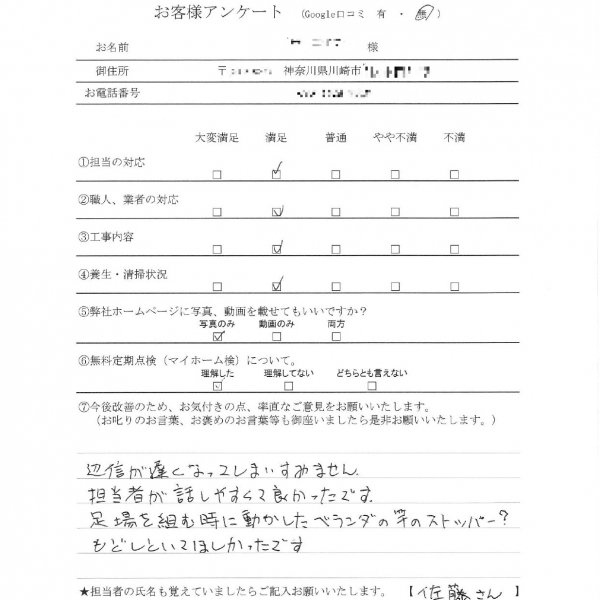 お客様アンケート （Google口コミ 有 ・ 無）
お名前 様
御住所 〒 神奈川県川崎市
お電話番号
大変満足 満足 普通 やや不満 不満
①担当の対応 □ ☑ □ □ □
②職人、業者の対応 □ ☑ □ □ □
③工事内容 □ ☑ □ □ □
④養生・清掃状況 □ ☑ □ □ □
⑤弊社ホームページに写真、動画を載せてもいいですか？
写真のみ 動画のみ 両方
☑ □ □
⑥無料定期点検（マイホーム検）について。
理解した 理解してない どちらとも言えない
☑ □ □
⑦今後改善のため、お気付きの点、率直なご意見をお願いいたします。
（お叱りのお言葉、お褒めのお言葉等も御座いましたら是非お願いいたします。）
返信が遅くなってしまいすみません
担当者が話しやすくて良かったです。
足場を組む時に動かしたベランダの竿のストッパー？
もどしといてほしかったです
★担当者の氏名も覚えていましたらご記入お願いいたします。 【佐藤さん】